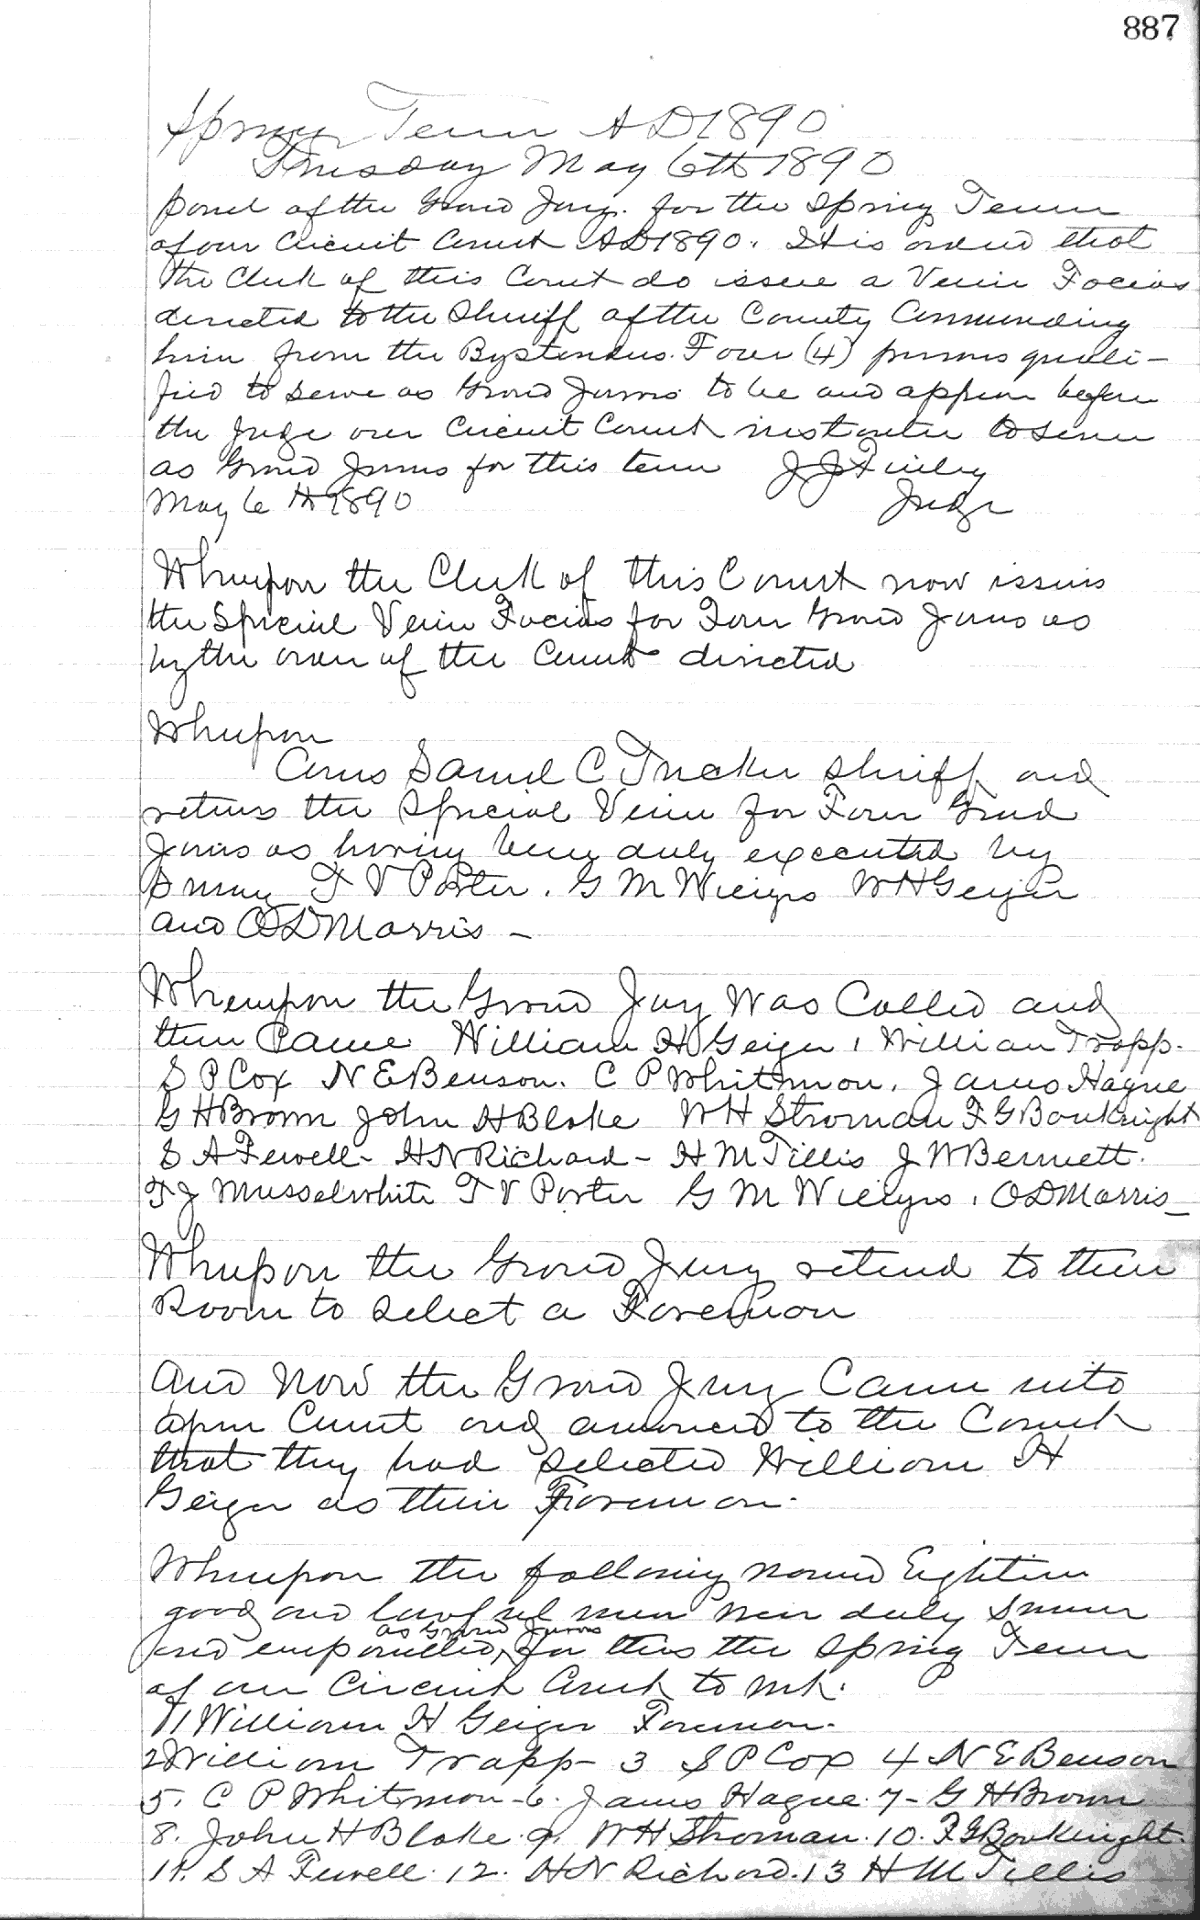 887
Spring Term AD 1890
Tuesday May 6th 1890
panel of the Grand Jury. for the Spring Term
of our Circuit Court AD 1890. It is ordered that
the Clerk of this Court do issue a Venire Facias
directed to the Sheriff of the County Commanding
him from the Bystanders. Four (4) persons quali-
fied to serve as Grand Jurors to be and appear before
the Judge our Circuit Court instanter to serve
as Grand Jurors for this term J J Finley
May 6th 1890 Judge
Whereupon the Clerk of this Court now issues
the Special Venire Facias for Four Grand Jurors as
by the order of the Court directed
Whereupon
Comes Samuel C Tucker Sheriff and
returns the Special Venire for Four Grand
Jurors as having been duly executed by
T V Porter. G M W H Geiger
and O D Morris -
Whereupon the Grand Jury Was Called and
then Came William H Geiger, William Trapp.
S P Cox N E Benson. C P Whitmon, James Hague
G H Brown John H Blake W H Stroman F G Bouknight
S A Fewell - H N Richard - H M Tillis J W Bennett.
T J Musselwhite T V Porter G M O D Morris -
Whereupon the Grand Jury retired to their
Room to select a Foreman
And Now the Grand Jury Came into
open Court and announced to the Court
that they had Selected William H
Geiger as their Foreman.
Whereupon the following named Eighteen
good and lawful men were duly Sworn
as Grand Jurors
and empanelled for this the Spring Term
of our Circuit Court to wit.
1 William H Geiger Foreman.
2 William Trapp - 3 S P Cox 4 N E Benson
5. C P Whitmon - 6. James Hague. 7 - G H Brown
8. John H Blake. 9. W H Stroman. 10. F G Bouknight.
11. S A Fewell. 12. H N Richard. 13 H M Tillis